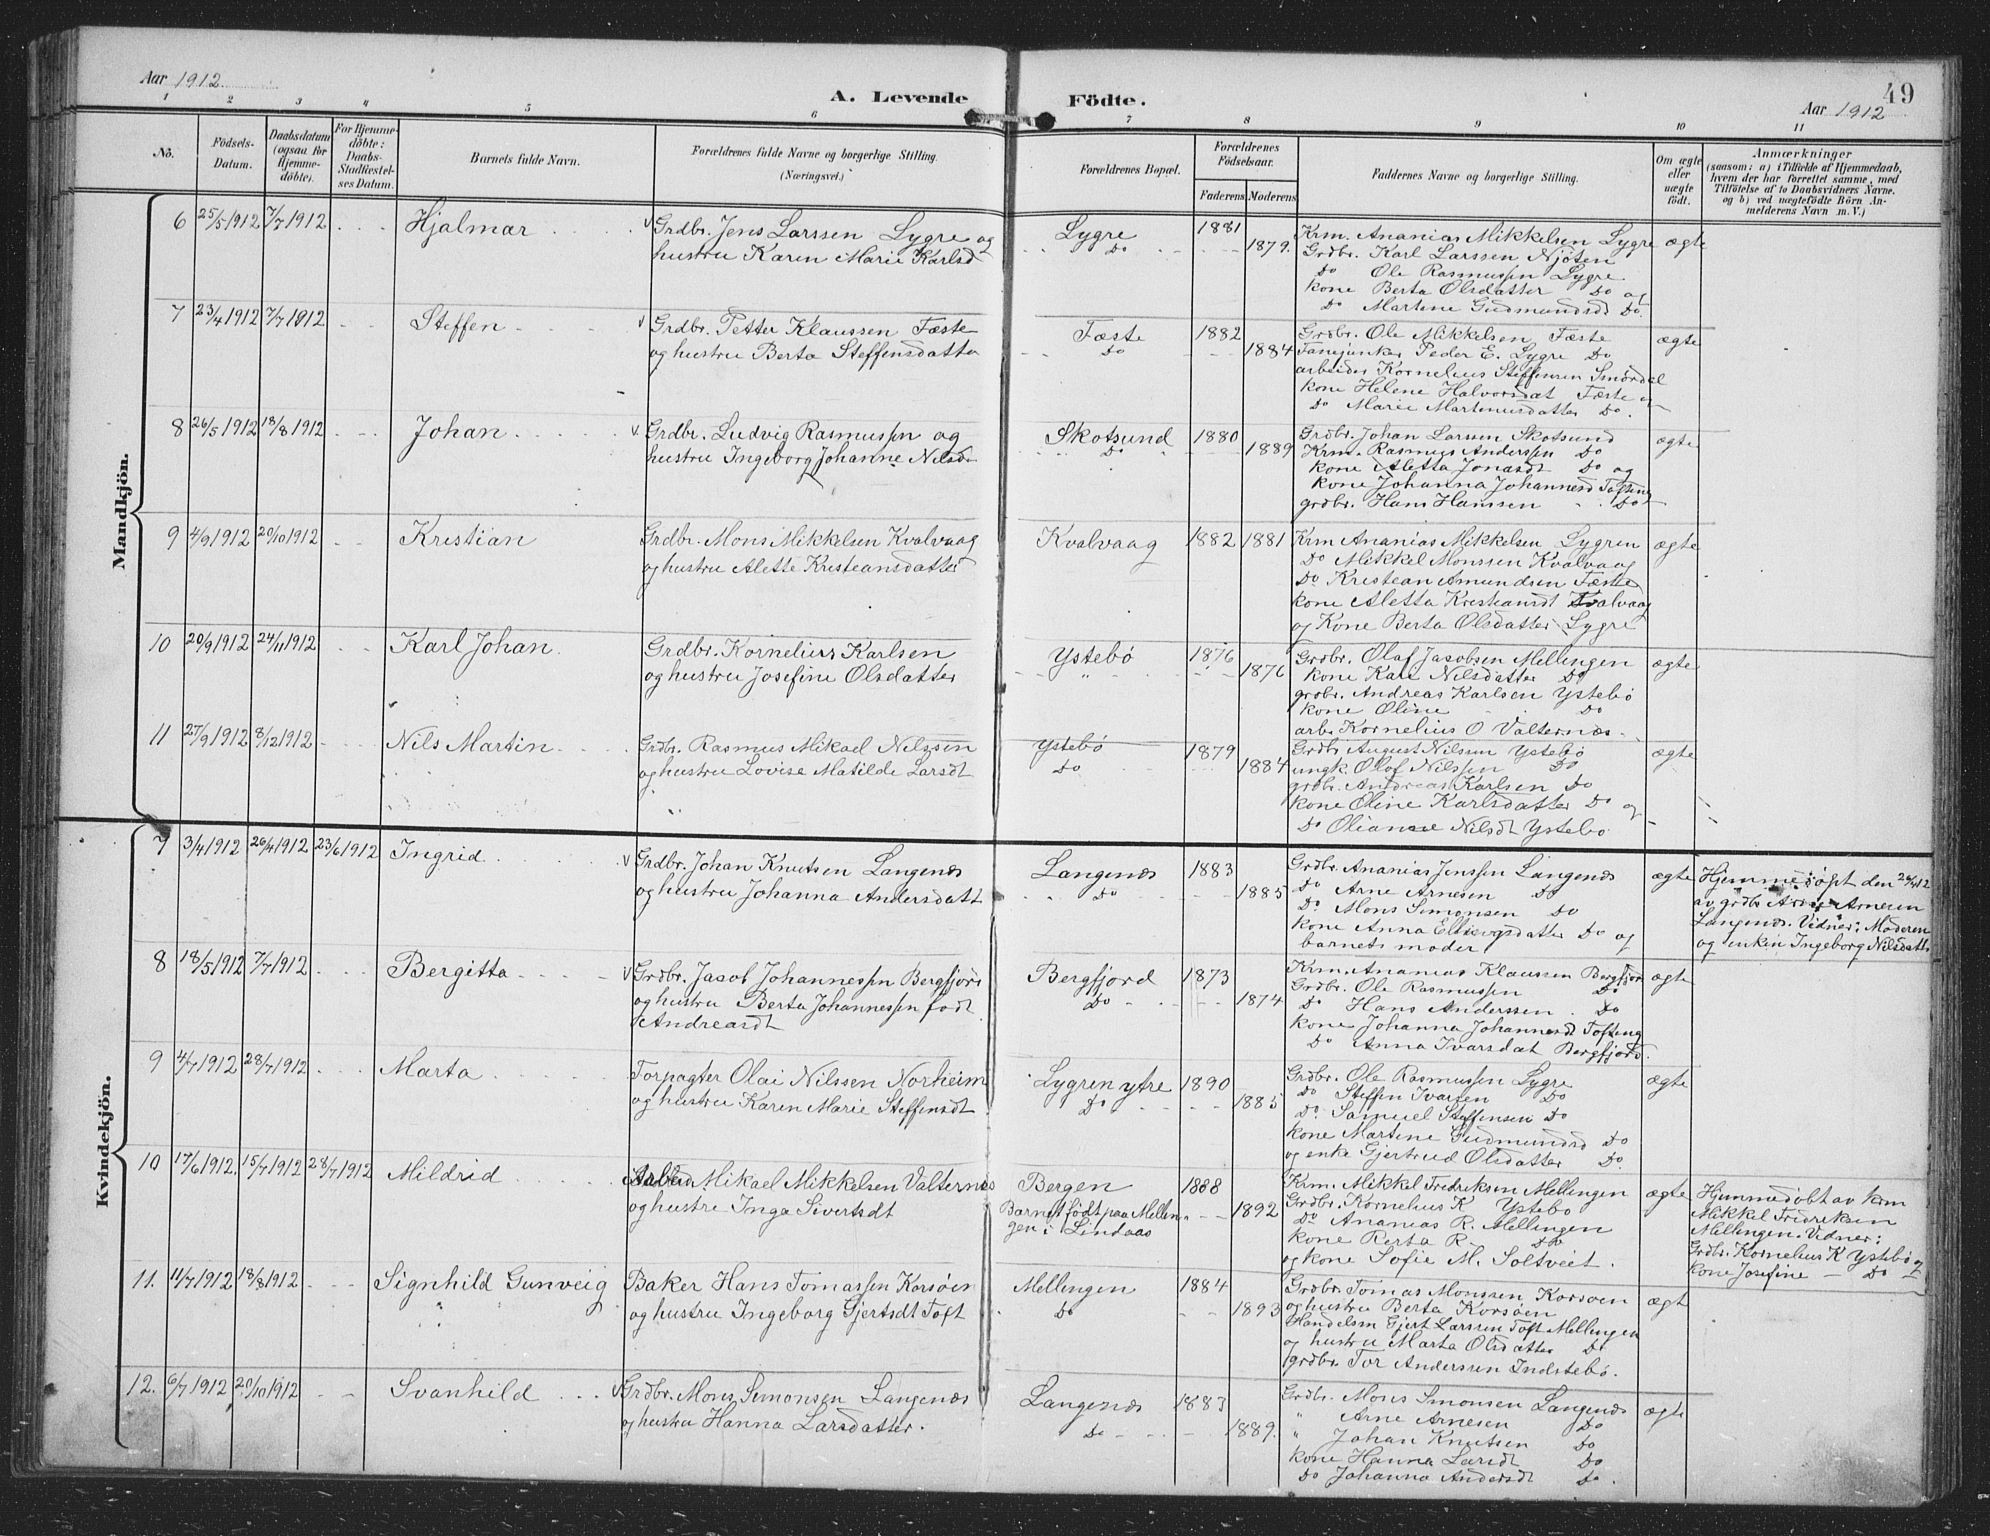 Aar 1912
A. Levende Födte.
49
Aar 1912
1 2 3 4 5 6 7 8 9 10 11
No.
Födsels-Datum.
Daabsdatum (ogsaa for Hjemmedöbte).
For Hjemmedöbte: Daabs-Stadfæstelses Datum.
Barnets fulde Navn.
Forældrenes fulde Navne og borgerlige Stilling.
(Næringsvei.)
Forældrenes Bopæl.
Forældrenes Födselsaar.
Faderens Moderens
Faddernes Navne og borgerlige Stilling.
Om ægte eller uægte födt.
Anmærkninger
(saasom: a) i Tilfælde af Hjemmedaab, hvem der har forrettet samme, med Tilföielse af to Daabsvidners Navne. og b) ved uægtefödte Börn Anmelderens Navn m. V.)
Mandkjön.
6 25/5 1912 7/7 1912 Hjalmar
Grdbr. Jens Larssen Lygre og
hustru Karen Marie Karlsd
Lygre 1881
Do 1879.
Krm. Ananias Mikkelsen Lygre ægte
Grdbr. Karl Larssen Njöten
Do Ole Rasmussen Lygre
kone Berta Olsdatter Do og
Do Martene Gudmundsd Do.
7 23/4 1912 7/7 1912 Steffen
Grdbr. Petter Klaussen Fæste
og hustru Berta Steffensdatter
Fæste 1882
Do 1884
Grdbr. Ole Mikkelsen Fæste ægte
Fanejunker Peder E. Lygre Do
arbeider Kornelius Steffensen Smördal
kone Helene Halvorsdat Fæste
Do Marie Martenusdatter Do.
8 26/5 1912 18/8 1912 Johan
Grdbr. Ludvig Rasmussen og
hustru Ingeborg Johanne Nilsd
Skotsund 1880
Do 1889
Grdbr. Johan Larssen Skotsund ægte
Krm. Rasmus Anderssen Do
kone Aletta Jonasdt Do og
kone Johanna Johannesd Tofting
grdbr. Hans Hanssen Do
9 4/9 1912 20/10 1912 Kristian
Grdbr. Mons Mikkelsen Kvalvaag
og hustru Alette Kristeansdatter
Kvalvaag 1882 1881
Krm Ananias Mikkelsen Lygren ægte
Do Mikkel Monssen Kvalvaag
Do Kristean Amundsen Fæste
kone Aletta Kristeansdt Kvalvaag
og Kone Berta Olsdatter Lygre
10 20/9 1912 24/11 1912 Karl Johan
Grdbr. Kornelius Karlsen
og hustru Josefine Olsdatter
Ystebö 1876
1876
Grdbr. Olaf Jacobsen Mellingen ægte
kone Kari Nilsdatter Do
grdbr. Andreas Karlsen Ystebö
kone Oline Do
arb. Kornelius O Valternæs
11 27/9 1912 8/12 1912 Nils Martin
Grdbr. Rasmus Mikael Nilssen
og hustru Lovise Matilde Larsdt
Ystebö 1879
Do 1884
Grdbr August Nilssen Ystebö ægte
ungk. Olaf Nilssen Do
grdbr. Andreas Karlsen Do
kone Oline Karlsdatter Do og
Do Olianne Nilsdt Ystebö
Kvindekjön.
7 3/4 1912 26/4 1912 23/6 1912 Ingrid
Grdbr. Johan Knutsen Langenæs
og hustru Johanna Andersdatt
Langenæs 1883
Do 1885
Grdbr. Ananias Jenssen Langenæs ægte
Do Arne Arnesen Do
Do Mons Simonsen Do
kone Anna Do og
barnets moder
Hjemmedöpt den 26/4 12
av grdbr Arne Arnesen
Langenæs. Vidner: Moderen
og enken Ingeborg Nilsdatt
8 18/5 1912 7/7 1912 Bergitta
Grdbr. Jacob Johannessen Bergfjord
og hustru Berta Johannessen födt
Andreasdt
Bergfjord 1873
Do 1874
Krm. Ananias Klaussen Bergfjor ægte
Grdbr. Ole Rasmussen Do
Do Hans Anderssen Do
kone Johanna Johannesd Tofting
Do Anna Ivarsdat Bergfjord.
9 4/7 1912 28/7 1912 Marta
Forpagter Olai Nilssen Norheim
og hustru Karen Marie Steffensdt
Lygren ytre 1890
Do 1885
Grdbr. Ole Rasmussen Lygre ægte
Do Steffen Ivarsen Do
Do. Samuel Steffensen Do
kone Martine Gudmundsd Do
og enke Gjertrud Olsdatter Do.
10 17/6 1912. 15/7 1912 28/7 1912 Mildrid
Mikael Mikkelsen Valternæs
og hustru Inga Sivertsdt
Bergen 1888
Barnet födt paa Mellingen i Lindaas 1892
Krm. Mikkel Fredriksen Mellingen ægte
Grdbr. Kornelius K Ystebö
Do Ananias R. Mellingen
kone Berta R. Do
og kone Sofie M. Soltveit.
Hjemmedöbt av krm
Mikkel Fredriksen
Mellingen. Vidner:
Grdbr. Kornelius K Ystebö og
kone Josefine Do
11. 11/7 1912 18/8 1912 Signhild Gunveig
Baker Hans Tomassen Korsöen
og hustru Ingeborg Gjertsdt Toft
Mellingen 1884
Do 1893
Grdbr. Tomas Monssen Korsoen ægt
og hustru Berta Korsöen
Handelsm Gjert Larssen Toft Mellingen
og hustru Marta Olsdatter Do
grdbr. Tor Anderssen Indstebö.
12. 6/7 1912 20/10 1912 Svanhild
Grdbr. Mons Simonsen Langenæs
og hustru Hanna Larsdatter.
Langenæs 1883
Do 1889.
Grdbr. Mons Simonsen Langenæs ægte
" Arne Arnesen Do
" Johan Knutsen Do
kone Hanna Larsdt Do
Do Johanna Andersdt Do.